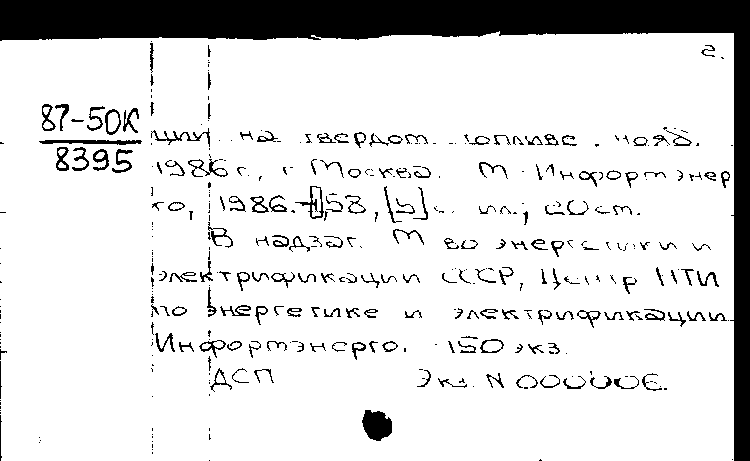 2.
87-50К
8395
ции на твердом топливе. нояб.
1986г., г Москва. М. Информэнер
го, 1986.-58, [5] с. ил.; 20 см.
В надзаг. М во энергетики и
электрификации СССР, Центр НТИ
по энергетике и электрификации
Информэнерго. 150 экз.
ДСП Экз. N 000006.